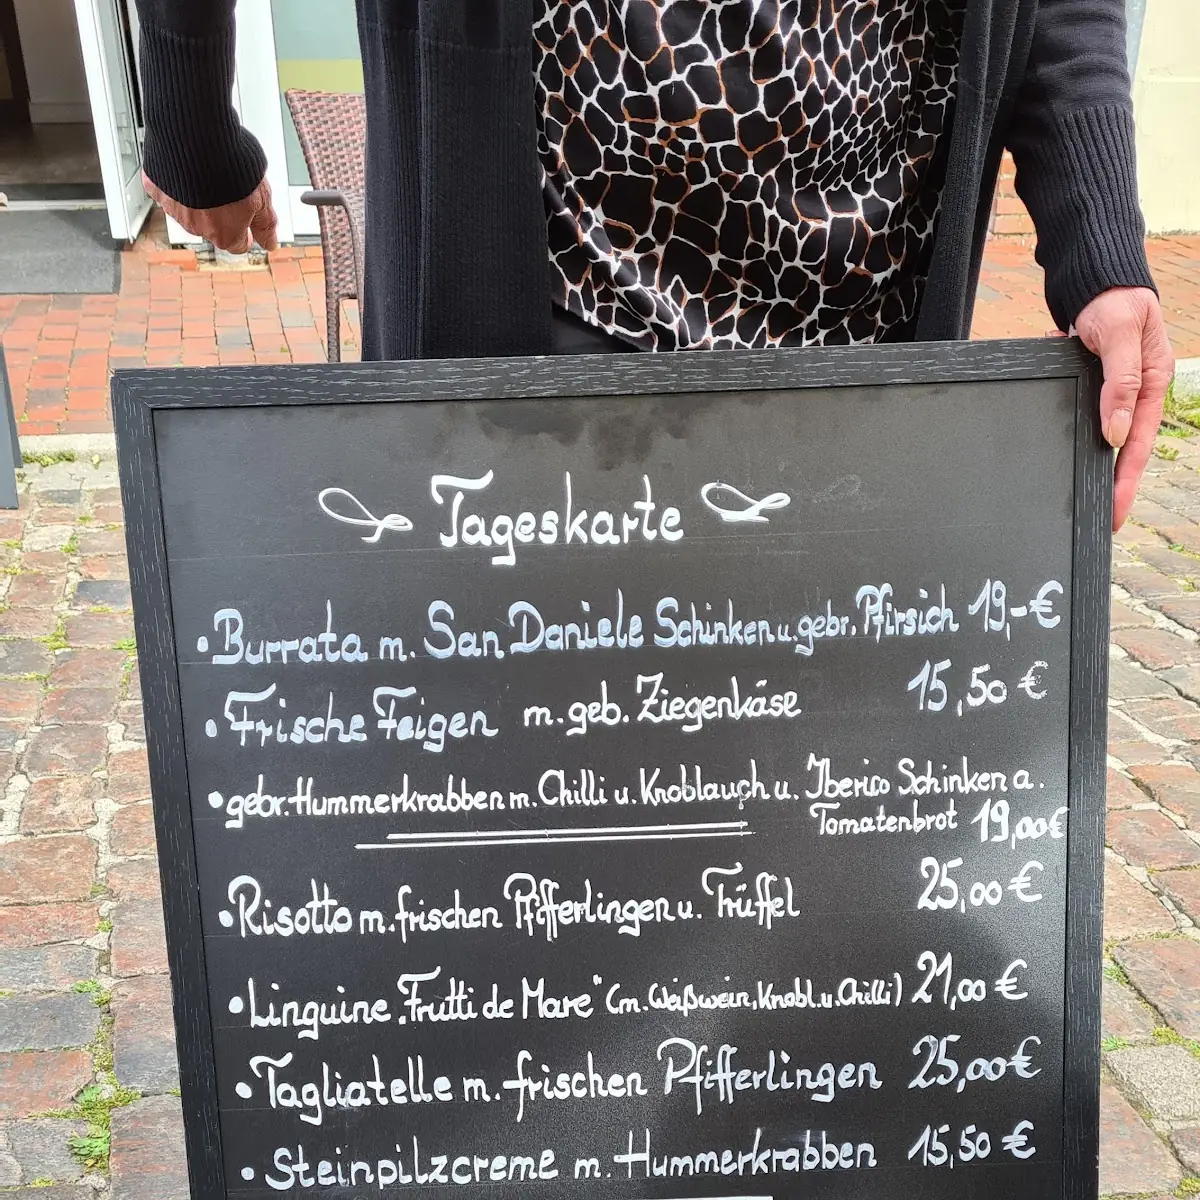 Tageskarte
• Burrata m. San Daniele Schinken u. gebr. Pfirsich 19,-€
• Frische Feigen m. geb. Ziegenkäse 15,50 €
• gebr. Hummerkrabben m. Chilli u. Knoblauch u. Iberico Schinken a.
Tomatenbrot 19,00€
• Risotto m. frischen Pfifferlingen u. Trüffel 25,00 €
• Linguine „Frutti de Mare" (m. Weißwein, Knobl. u. Chilli) 21,00 €
• Tagliatelle m. frischen Pfifferlingen 25,00€
• Steinpilzcreme m. Hummerkrabben 15,50 €